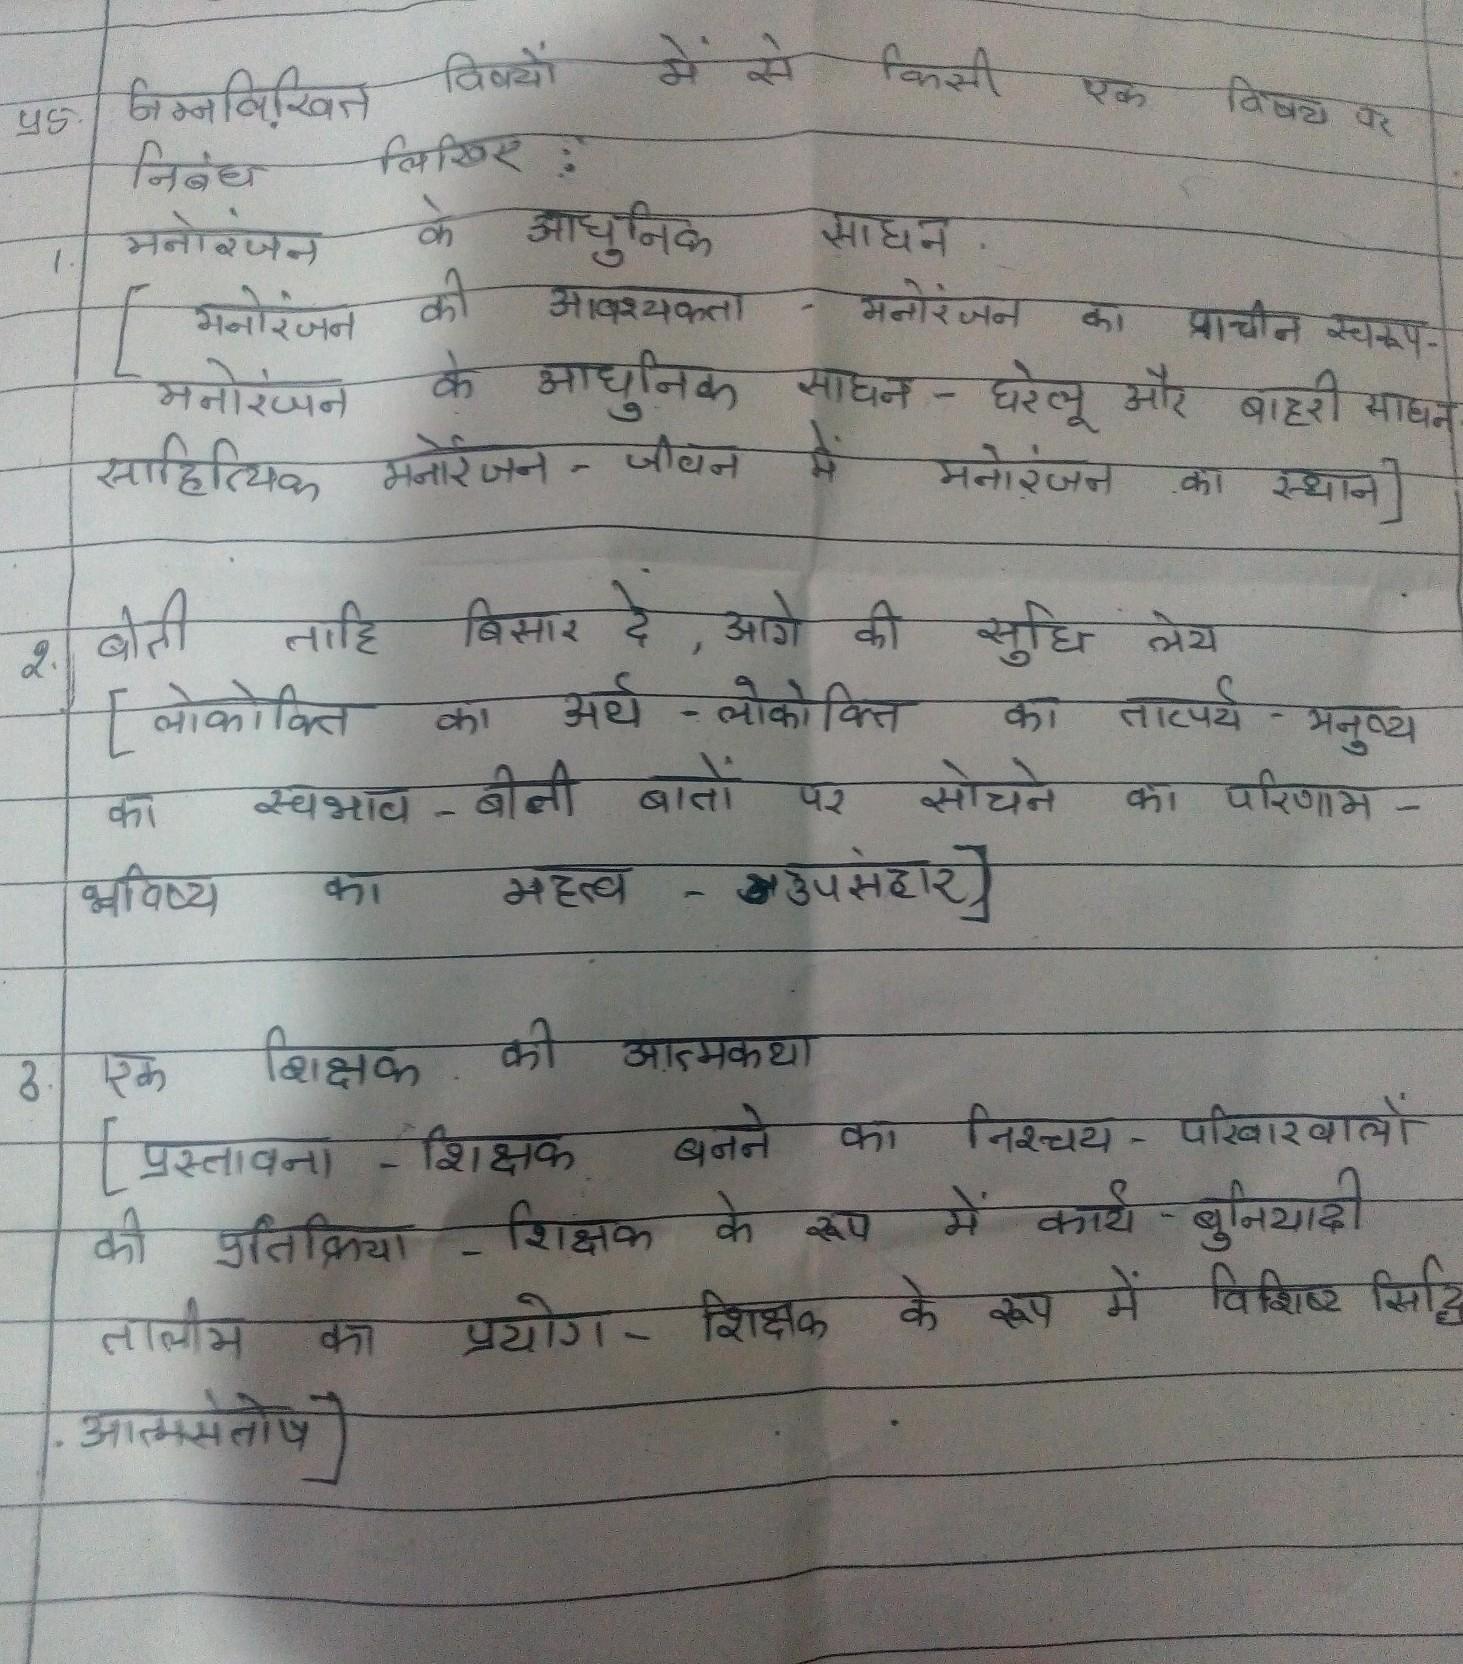 प्र5. निम्नलिखित विषयों में से किसी एक विषय पर
निबंध लिखिए :
1. मनोरंजन के आधुनिक साधन.
[ मनोरंजन की आवश्यकता - मनोरंजन का प्राचीन स्वरूप-
मनोरंजन के आधुनिक साधन - घरेलू और बाहरी साधन
साहित्यिक मनोरंजन - जीवन में मनोरंजन का स्थान]
2. बीती ताहि बिसार दें, आगे की सुधि लेय
[ लोकोक्ति का अर्थ - लोकोक्ति का तात्पर्य - मनुष्य
का स्वभाव - बीती बातों पर सोचने का परिणाम -
भविष्य का महत्व - उपसंहार]
3. एक शिक्षक की आत्मकथा
[प्रस्तावना - शिक्षक बनने का निश्चय - परिवारवालों
की प्रतिक्रिया - शिक्षक के रूप में कार्य - बुनियादी
तालीम का प्रयोग - शिक्षक के रूप में विशिष्ट सिद्धि
आत्मसंतोष]